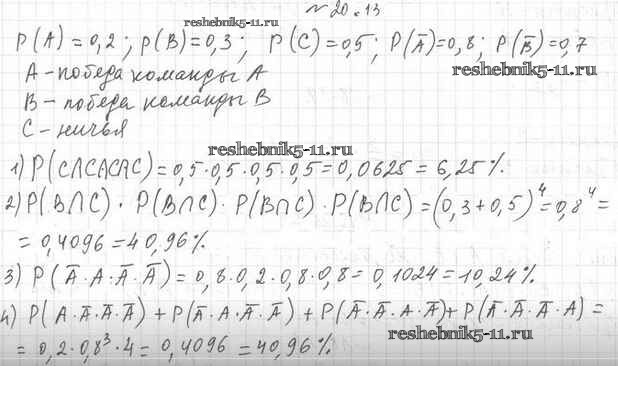 № 20.13
reshebnik5-11.ru
P(A) = 0,2; P(B) = 0,3; P(C) = 0,5; P(Ā) = 0,8; P(B̄) = 0,7
reshebnik5-11.ru
A - победа команды A
B - победа команды B
C - ничья
reshebnik5-11.ru
1) P(C∩C∩C∩C) = 0,5·0,5·0,5·0,5 = 0,0625 = 6,25%.
2) P(B∩C) · P(B∩C) · P(B∩C) · P(B∩C) = (0,3+0,5)⁴ = 0,8⁴ =
= 0,4096 = 40,96%.
3) P(Ā·A·Ā·Ā) = 0,8·0,2·0,8·0,8 = 0,1024 = 10,24%.
4) P(A·Ā·Ā·Ā) + P(Ā·A·Ā·Ā) + P(Ā·Ā·A·Ā) + P(Ā·Ā·Ā·A) =
reshebnik5-11.ru
= 0,2·0,8³·4 = 0,4096 = 40,96%.